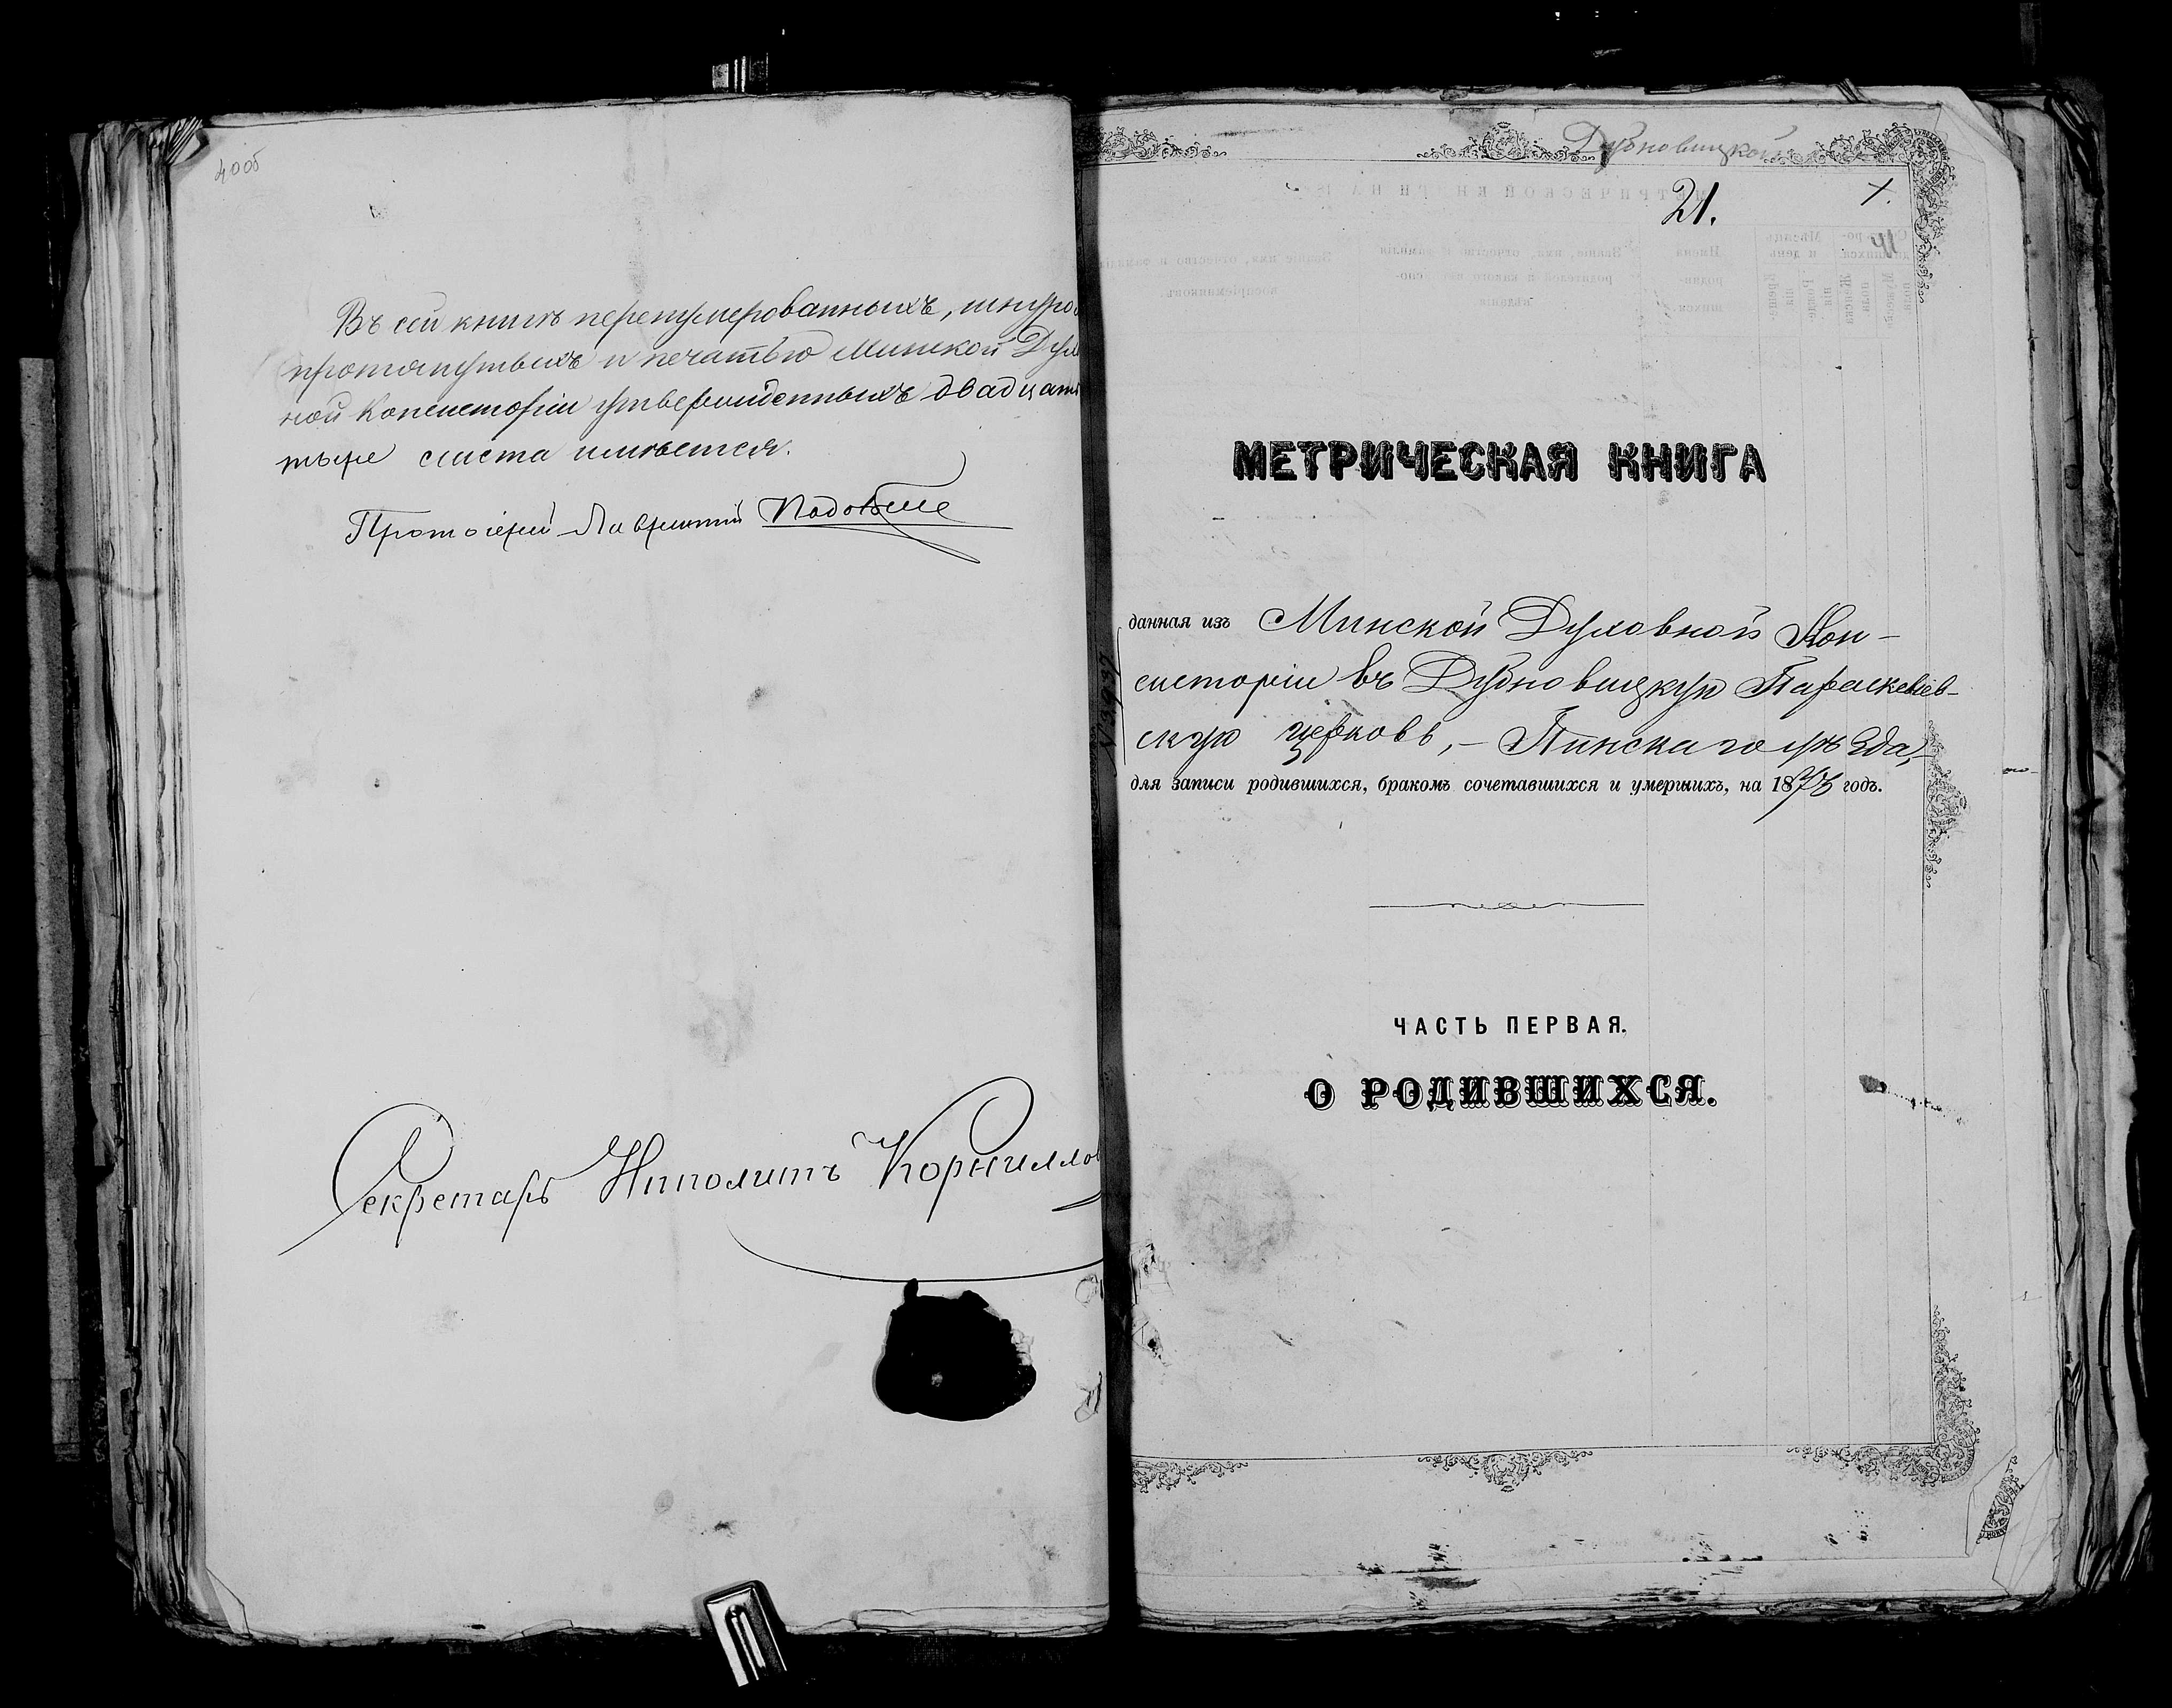 40об
Въ сей книгѣ перенумерованныхъ, шнуро
протянутыхъ и печатью Минской Духо
ной Консисторіи утвержденныхъ двадцать
тыре листа имѣется.
Протоіерей Лаврентій
Секретарь Ипполитъ Корнилло
Дубновицкой
21.
МЕТРИЧЕСКАЯ КНИГА
данная изъ Минской Духовной Кон-
систоріи въ Дубновицкую Параскевіев-
скую церковь, – Пинскаго уѣзда,
для записи родившихся, бракомъ сочетавшихся и умершихъ, на 1873 годъ.
ЧАСТЬ ПЕРВАЯ.
О РОДИВШИХСЯ.